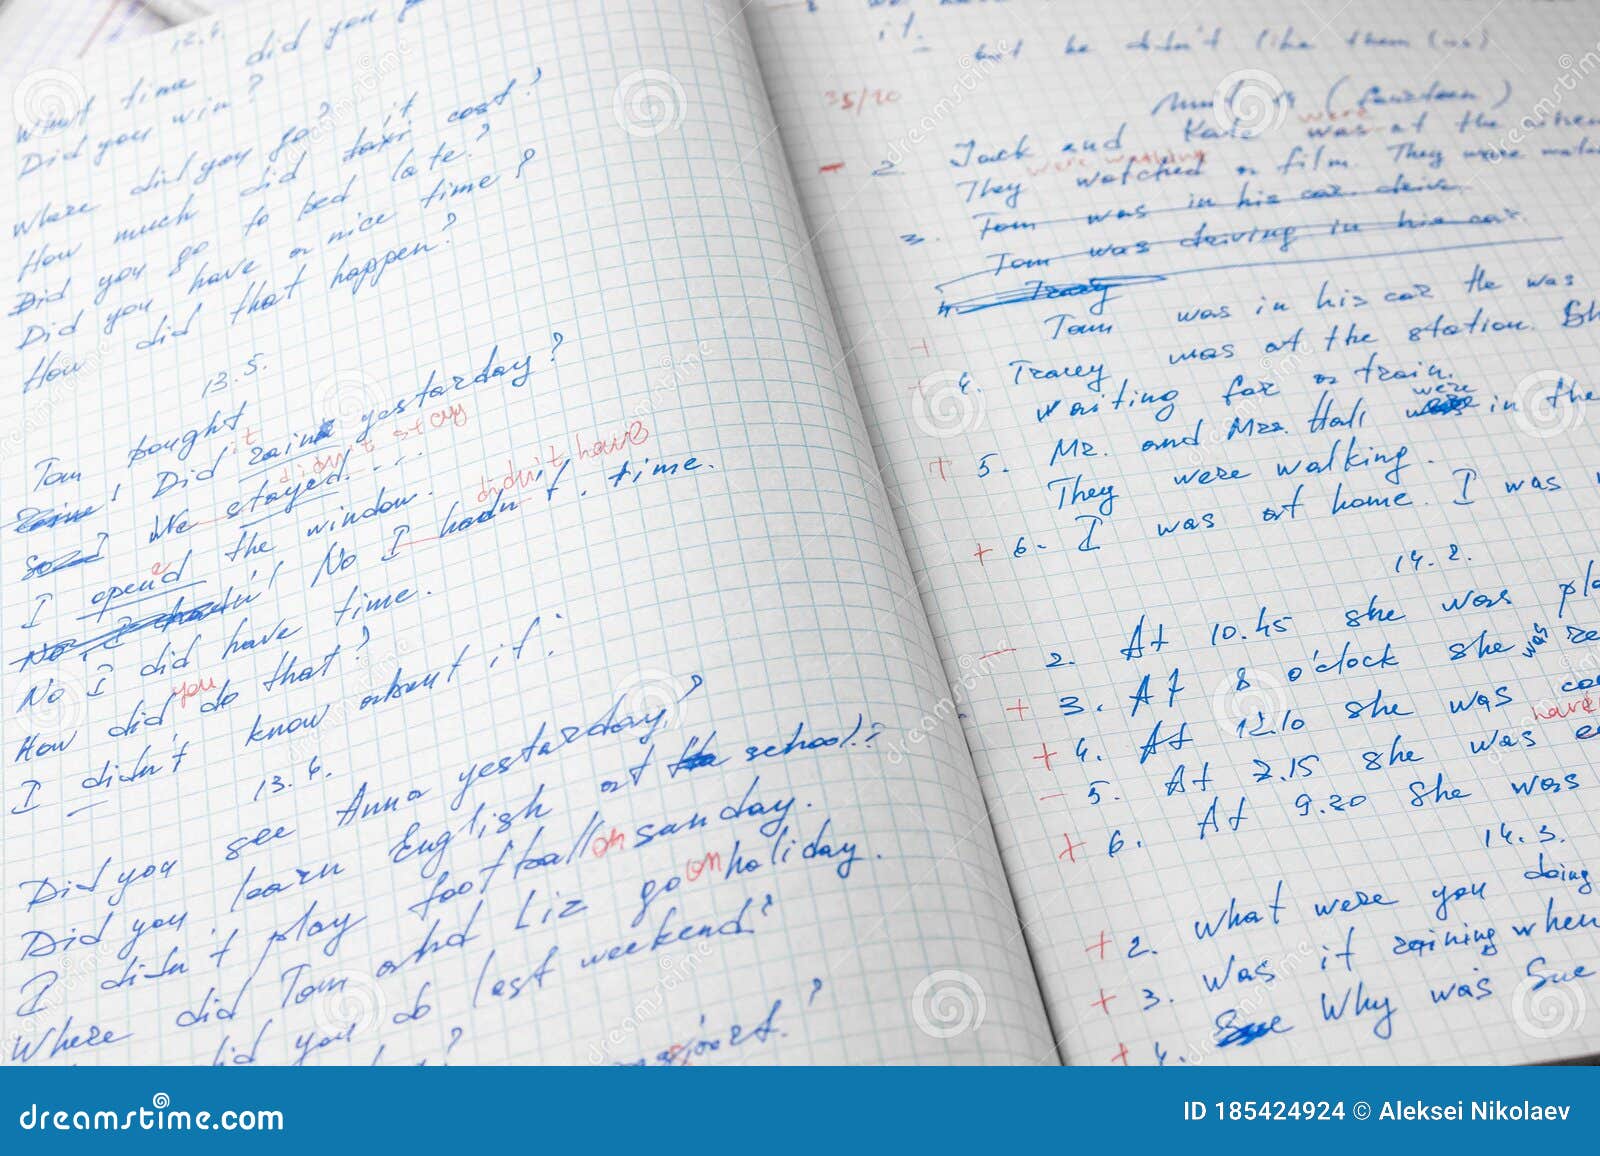 12.4.
What time did you
Did you win?
Where did you go?
How much did taxi it cost?
Did you go to bed late?
Did you have a nice time?
How did that happen?
13.5.
Tom bought
Did it rain yestarday?
We stayed. . . .
didn't stay
I opened the window.
didn't have
No I hadn't. time.
No I did have time.
How did you do that?
I didn't know about it.
13.6.
Did you see Anna yestarday?
Did you learn English at school?
I didn't play football on sanday.
Where did Tom and Liz go on holiday.
did you do last weekend?
?
it.
but he didn't like them (us)
35/20
(fourteen)
were
- 2. Jack and Kate was at the
were watching
They watched a film. They were
3. Tom was in his car. drive.
Tom was driving in his car.
4. Tracy
+ Tom was in his car He was
+ 4. Tracey was at the station. Sh
waiting for a train.
were
+ 5. Mr. and Mrs. Hall in the
They were walking.
+ 6. I was at home. I was
14.2.
- 2. At 10.45 she was pla
+ 3. At 8 o'clock she was re
+ 4. At 12.10 she was co
- 5. At 7.15 she was
+ 6. At 9.20 she was
14.3.
+ 2. What were you doing
+ 3. Was it raining when
+ 4. Sue Why was Sue
dreamstime.com
ID 185424924 © Aleksei Nikolaev